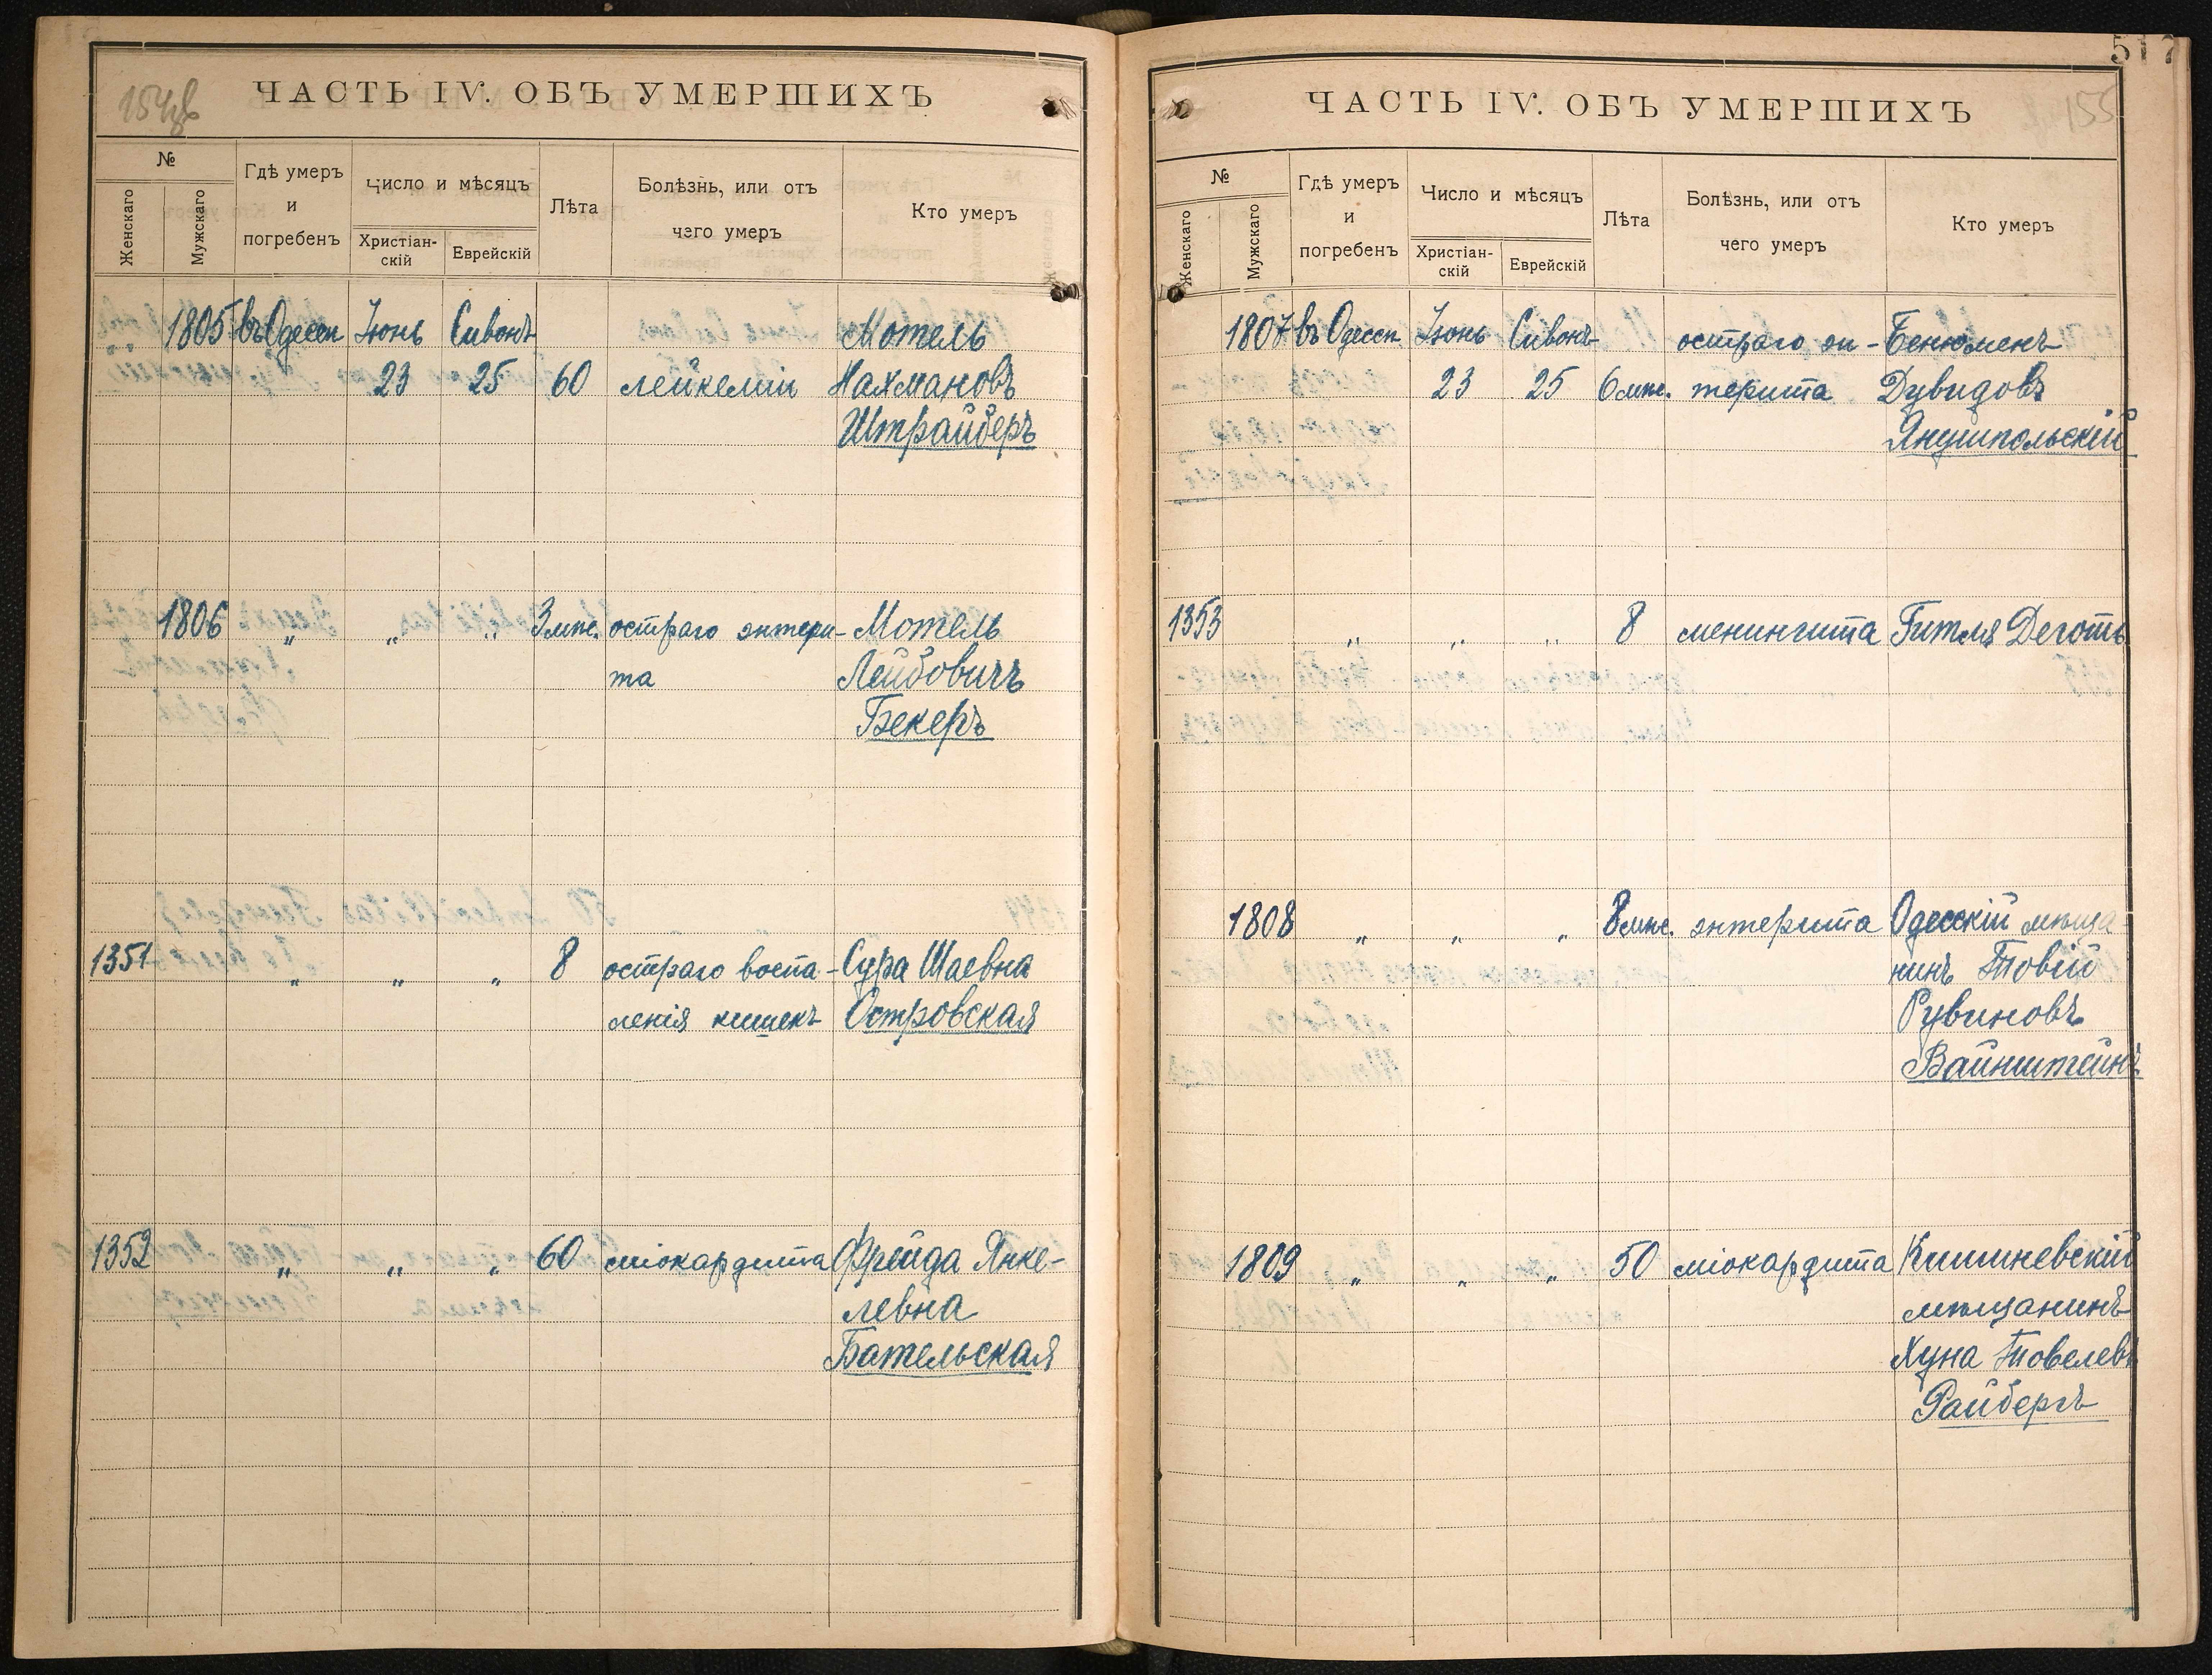 154об
ЧАСТЬ IV. ОБЪ УМЕРШИХЪ
№
Женскаго
Мужскаго
Гдѣ умеръ
и
погребенъ
Число и мѣсяцъ
Христіан-
скій
Еврейскій
Лѣта
Болѣзнь, или отъ
чего умеръ
Кто умеръ
1805 въ Одессѣ Іюнь Сивонъ Мотель
23 25 60 лейкеміи Нахмановъ
Штрайберъ
1806 „ „ „ 3 мѣс. остраго энтери- Мотель
та Лейбовичъ
Бекеръ
1351 „ „ „ 8 остраго воспа- Сура Шаевна
ленія кишекъ Островская
1352 „ „ „ 60 міокардита Фрейда Янке-
левна
Бательская
517
155
ЧАСТЬ IV. ОБЪ УМЕРШИХЪ
№
Женскаго
Мужскаго
Гдѣ умеръ
и
погребенъ
Число и мѣсяцъ
Христіан-
скій
Еврейскій
Лѣта
Болѣзнь, или отъ
чего умеръ
Кто умеръ
1807 въ Одессѣ Іюнь Сивонъ остраго эн- Бенюменъ
23 25 6 мѣс. терита Дувидовъ
Янушпольскій
1353 „ „ „ 8 менингита Гитля Деготь
1808 „ „ „ 8 мѣс. энтерита Одесскій мѣща-
нинъ Товій
Рувиновъ
Вайнштейнъ
1809 „ „ „ 50 міокардита Кишиневскій
мѣщанинъ
Хуна Товелевъ
Райбергъ